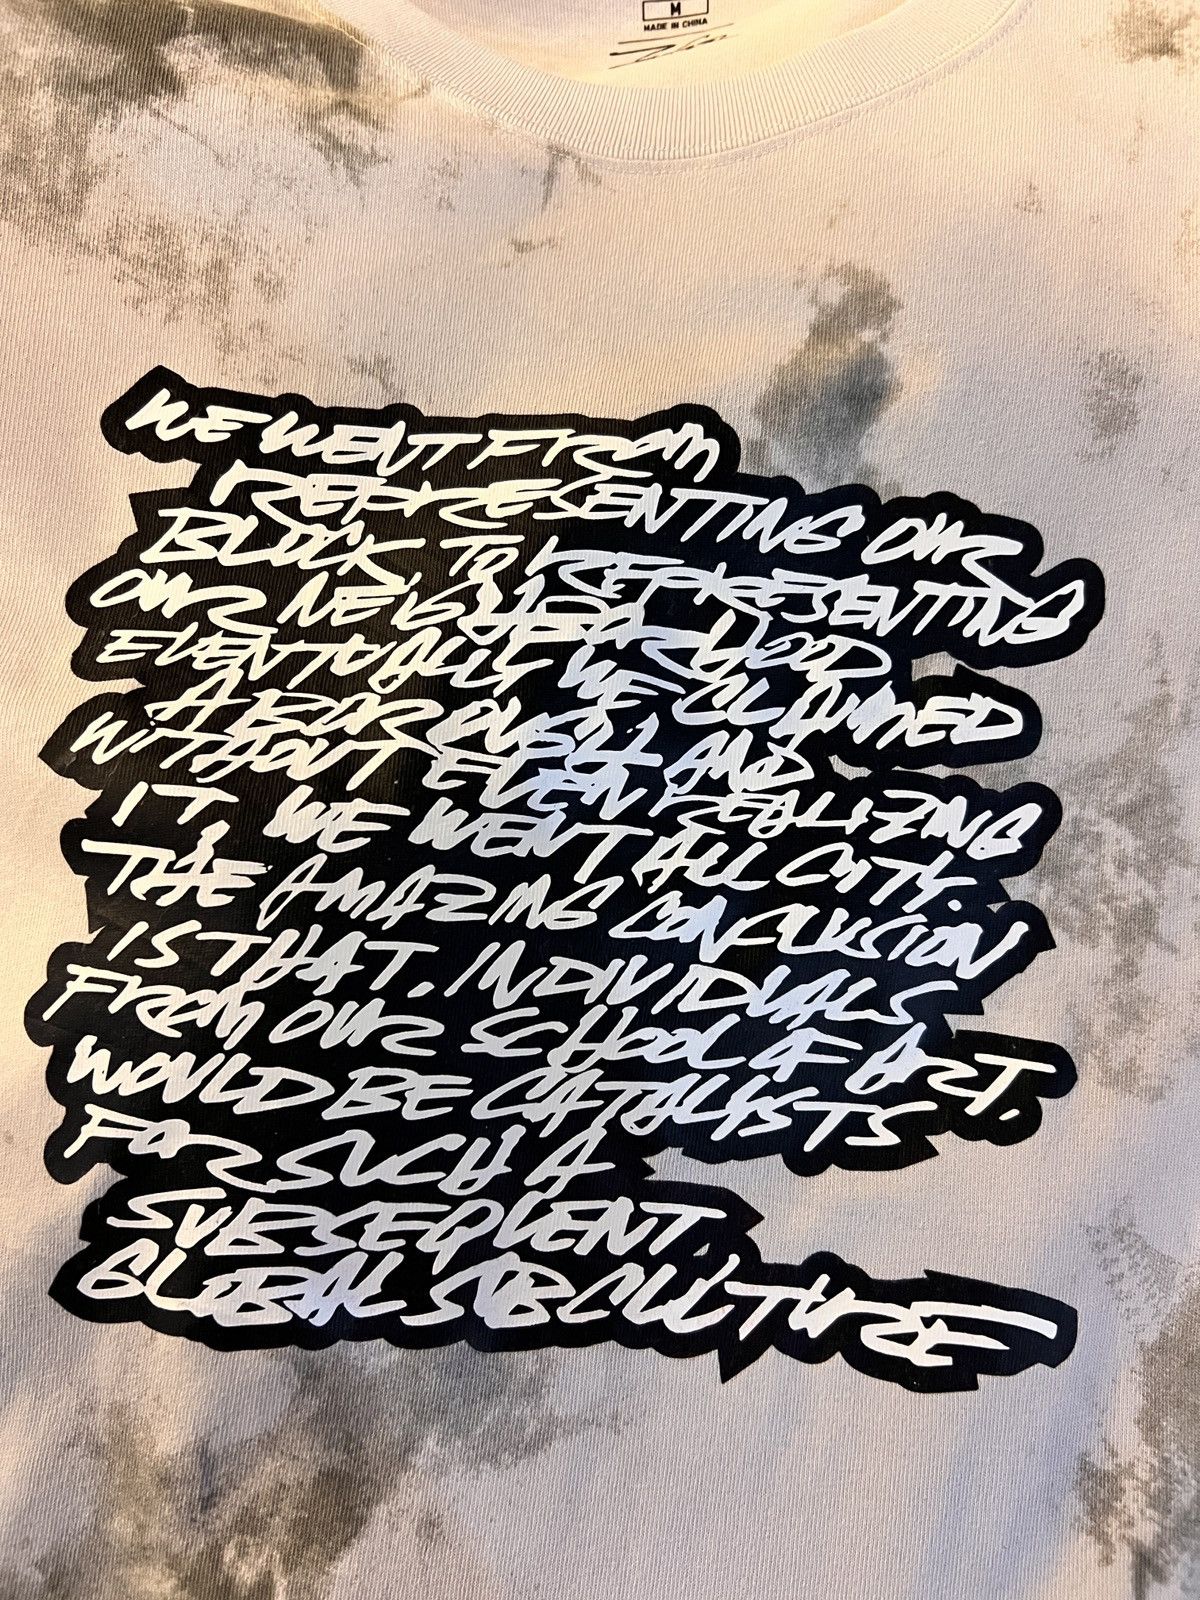 M
MADE IN CHINA
WE WENT FROM
REPRESENTING OUR
BLOCK, TO REPRESENTING
OUR NEIGHBORHOOD
EVENTUALLY WE CLAIMED
A BOROUGH AND
WITHOUT EVEN REALIZING
IT, WE WENT ALL CITY.
THE AMAZING CONCLUSION
IS THAT, INDIVIDUALS
FROM OUR SCHOOL OF ART,
WOULD BE CATALYSTS
FOR SUCH A
SUBSEQUENT
GLOBAL SUBCULTURE